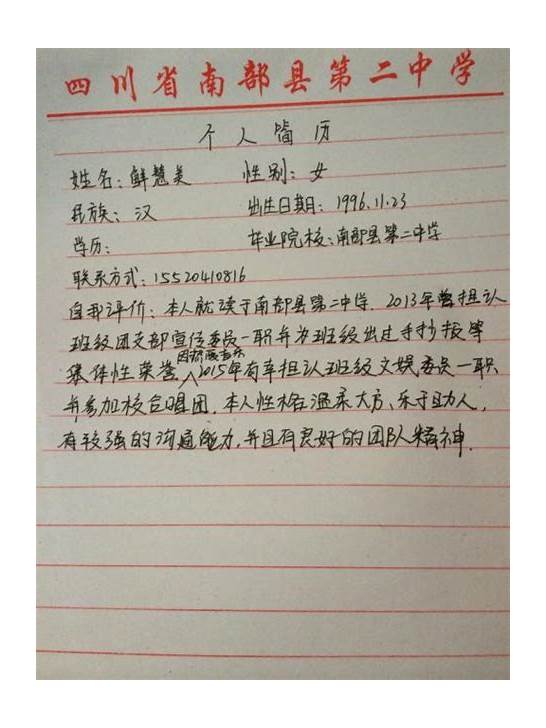 四川省南部县第二中学
个人简历
姓名：鲜慧美 性别：女
民族：汉 出生日期：1996.11.23
学历： 毕业院校：南部县第二中学
联系方式：15520410816
自我评价：本人就读于南部县第二中学．2013年曾担认
班级团支部宣传委员一职并为班级出过手抄报等
集体性荣誉因挤爱音乐2015年有幸担认班级文娱委员一职
并参加校合唱团．本人性格温柔大方、乐于助人，
有较强的沟通能力，并且有良好的团队精神．